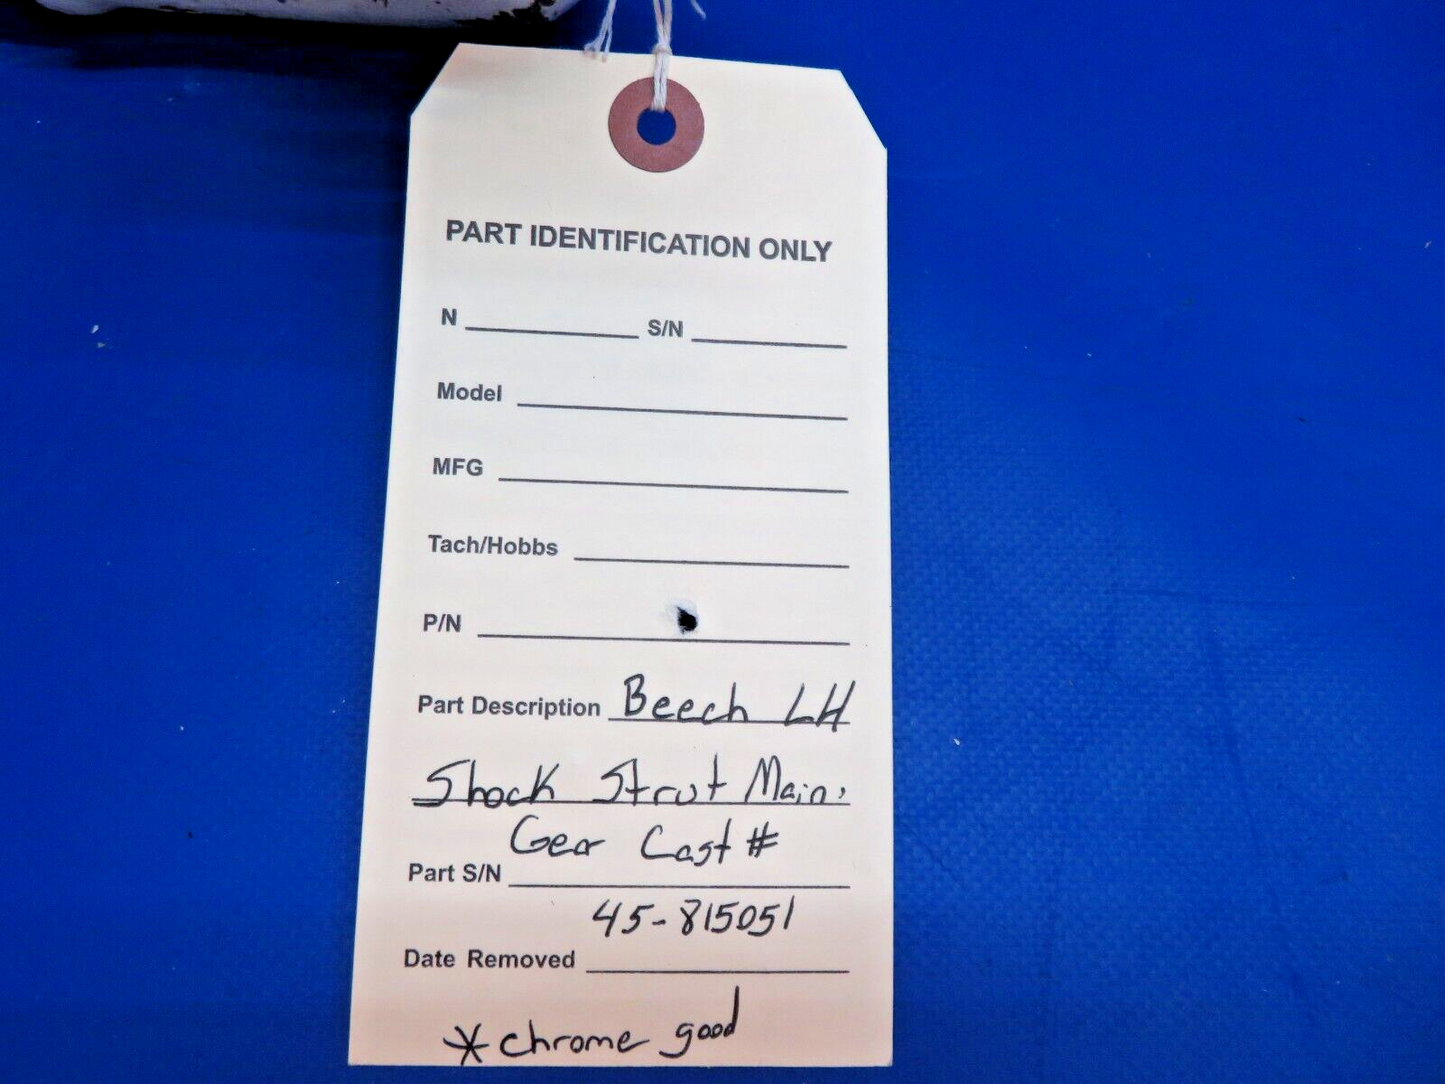 PART IDENTIFICATION ONLY
N S/N
Model
MFG
Tach/Hobbs
P/N
Part Description Beech LH
Shock Strut Main.
Gear Cast #
Part S/N
45-815051
Date Removed
* chrome good